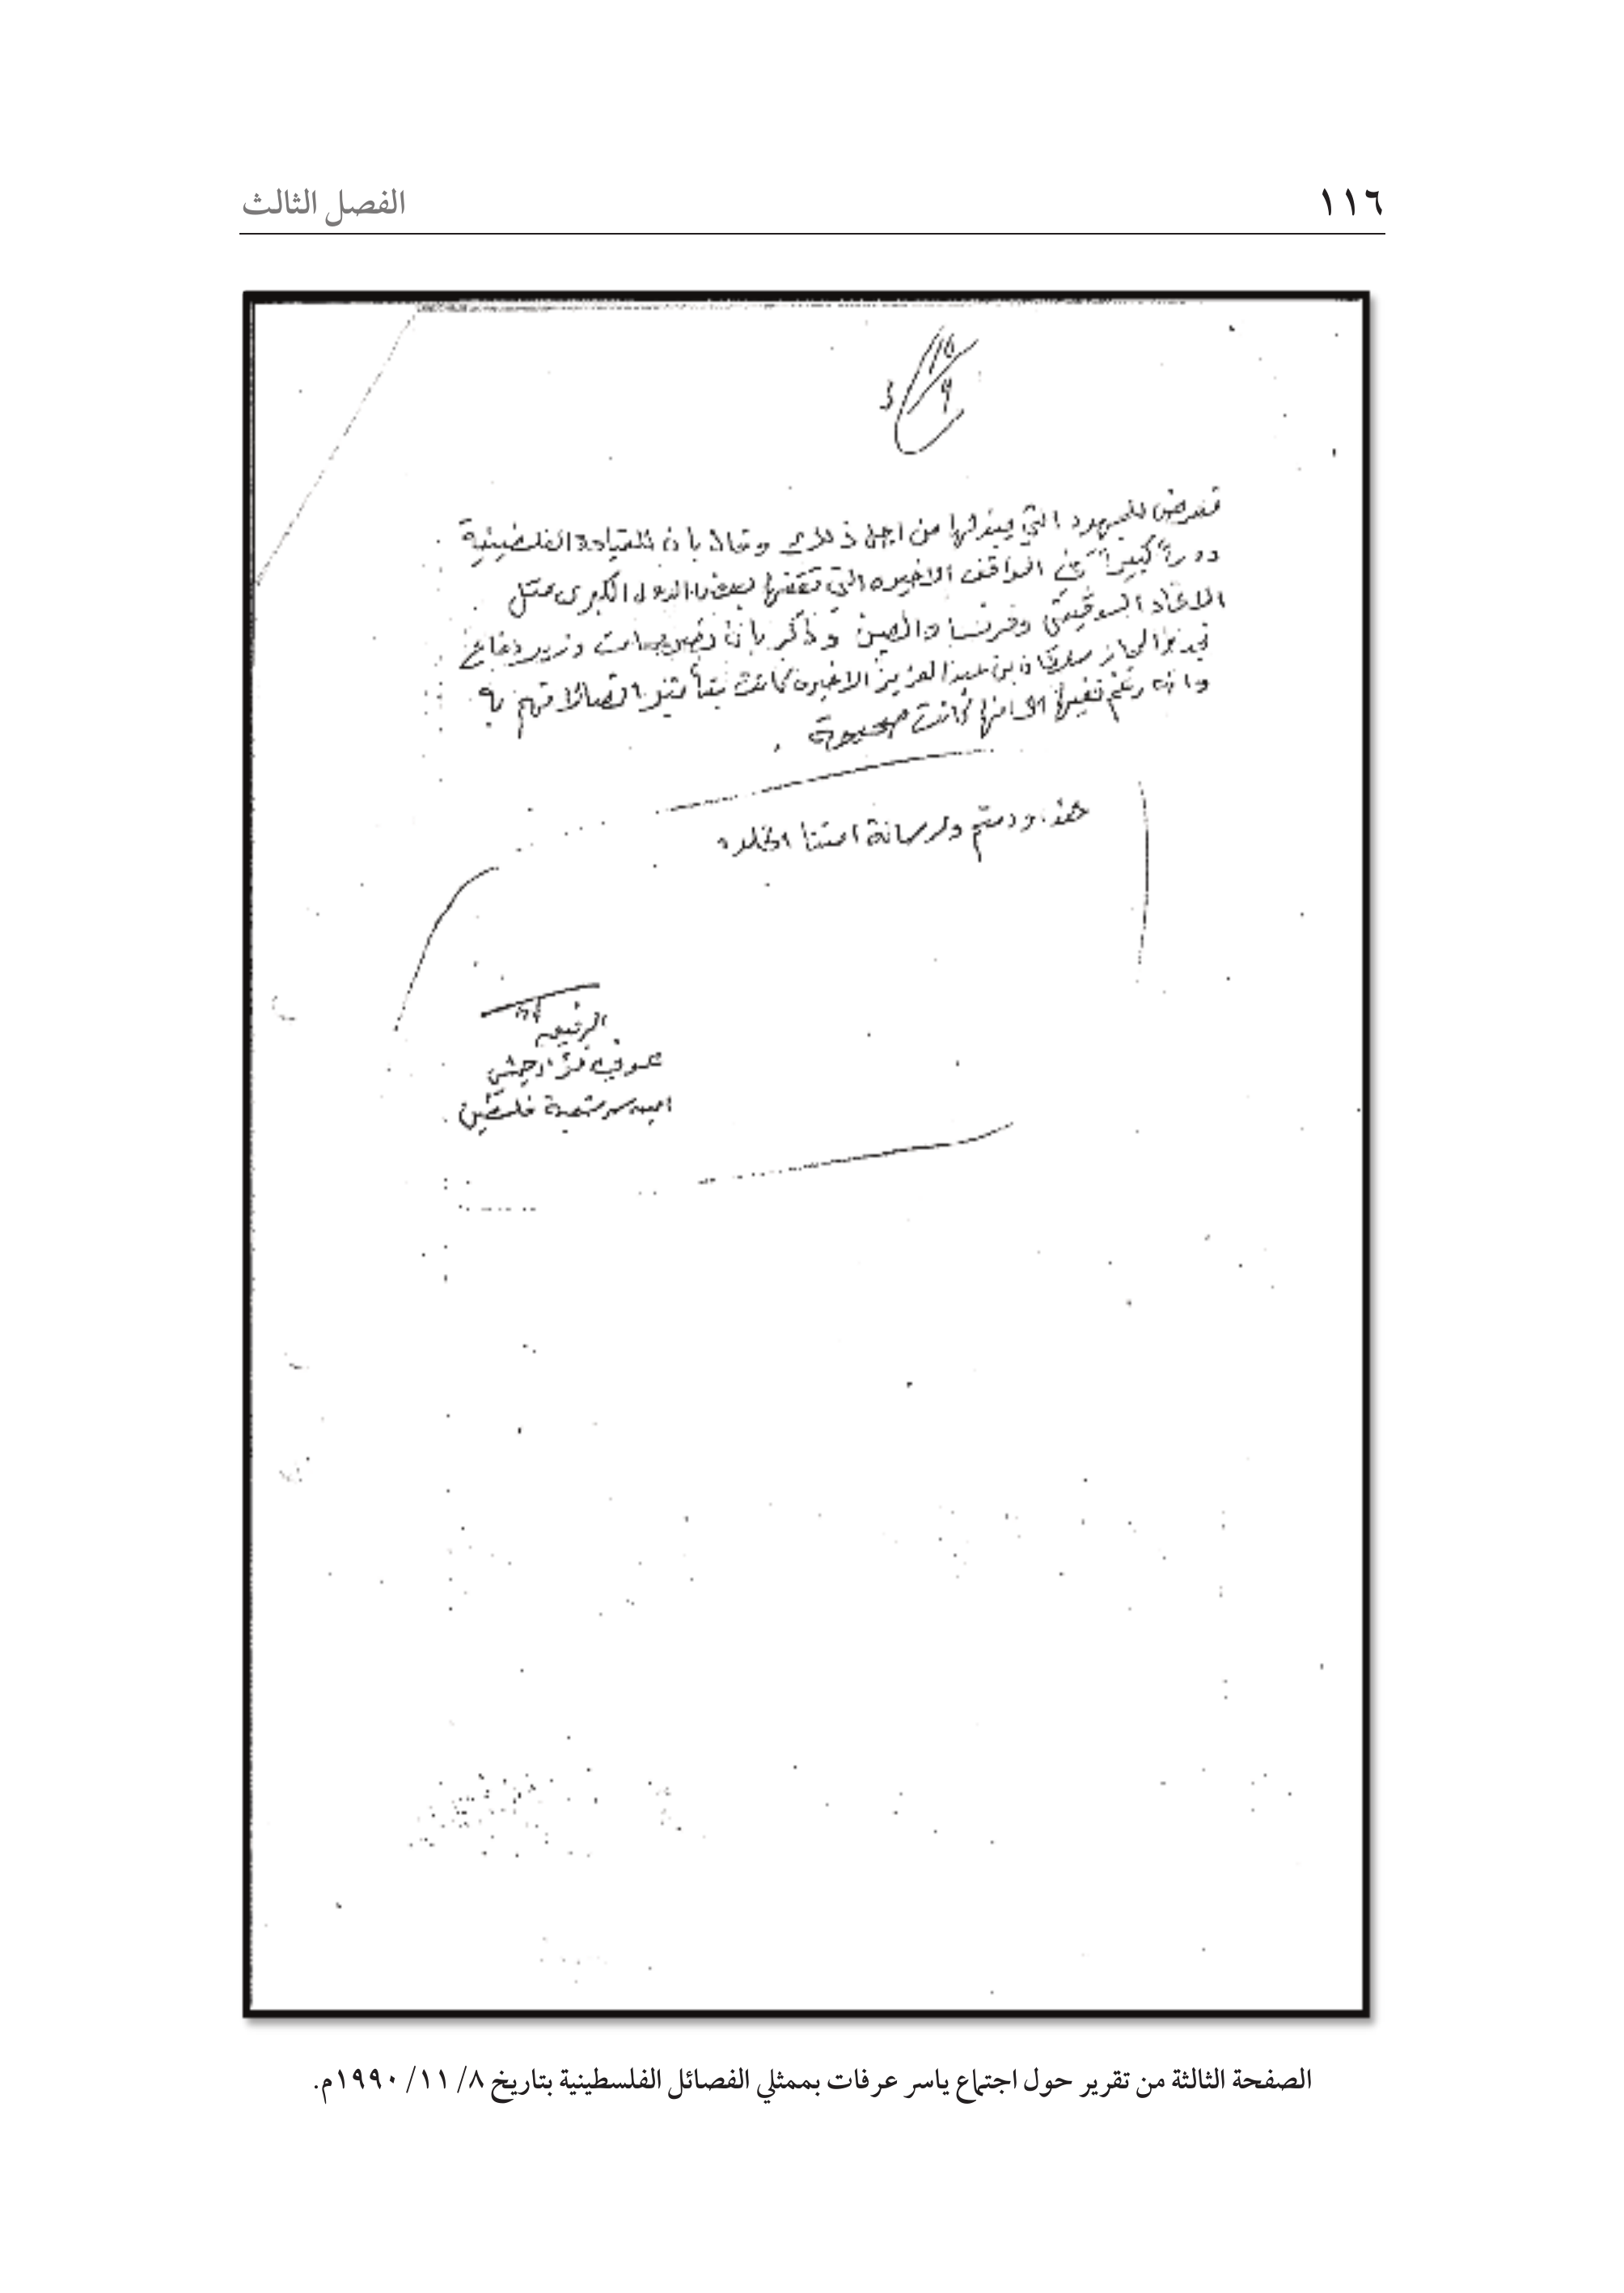 ١١٦
الفصل الثالث
فتعرض للجهود التي يبذلها من اجل ذلك وقال بان للقيادة الفلسطينية
دوراً كبيراً في المواقف الاخيره التي تقفها بعض الدول الكبرى مثل
الاتحاد السوفيتي وفرنسا والصين وذكر بان تصريحات وزير دفاع
نجد والحجاز سلطان بن عبد العزيز الاخيره كانت بتأثير اتصالاتهم به
وانه رغم نفيها الا انها كانت صحيحة .
هذا ودمتم ولرسالة امتنا الخلود
الرفيق
عوني
امين سر شعبة فلسطين
الصفحة الثالثة من تقرير حول اجتماع ياسر عرفات بممثلي الفصائل الفلسطينية بتاريخ ٨/ ١١/ ١٩٩٠م.